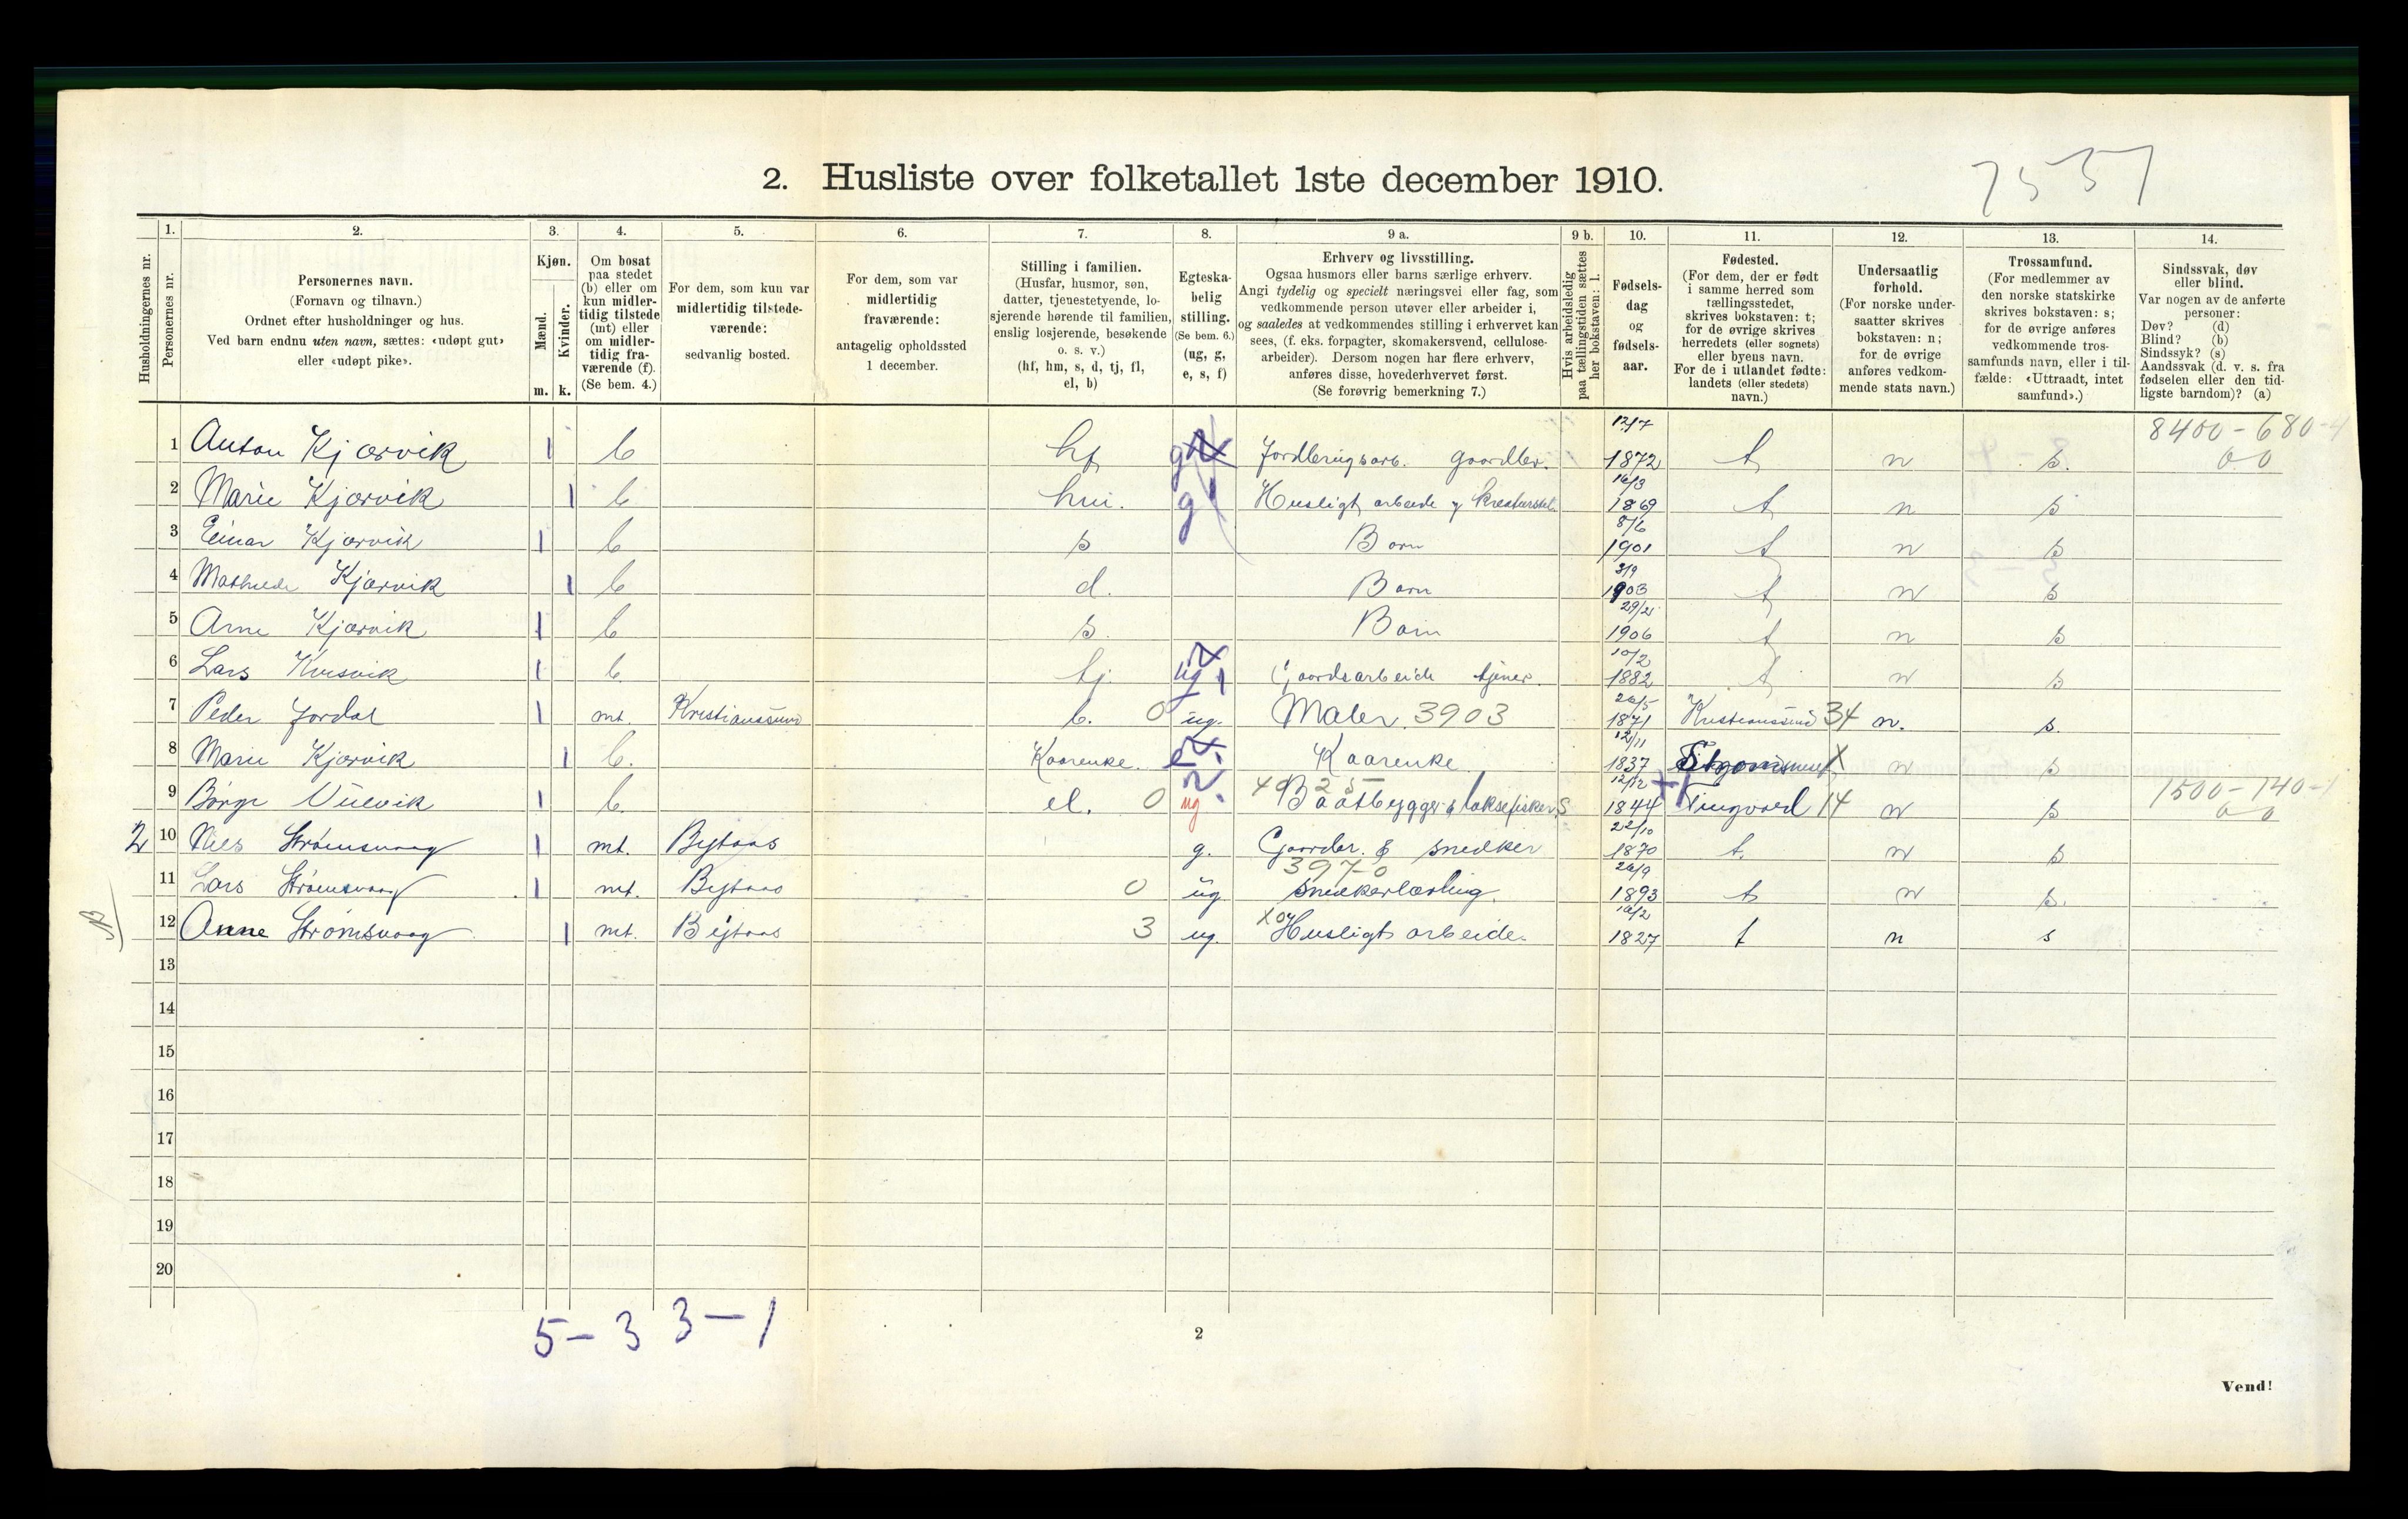 7557
2. Husliste over folketallet 1ste december 1910.
Husholdningernes nr.
1. Personernes nr.
2. Personernes navn.
(Fornavn og tilnavn.)
Ordnet efter husholdninger og hus.
Ved barn endnu uten navn, sættes: «udøpt gut»
eller «udøpt pike».
3. Kjøn.
Mænd. m.
Kvinder. k.
4. Om bosat
paa stedet
(b) eller om
kun midler-
tidig tilstede
(mt) eller
om midler-
tidig fra-
værende (f).
(Se bem. 4.)
5. For dem, som kun var
midlertidig tilstede-
værende:
sedvanlig bosted.
6. For dem, som var
midlertidig
fraværende:
antagelig opholdssted
1 december.
7. Stilling i familien.
(Husfar, husmor, søn,
datter, tjenestetyende, lo-
sjerende hørende til familien,
enslig losjerende, besøkende
o. s. v.)
(hf, hm, s, d, tj, fl,
el, b)
8. Egteska-
belig
stilling.
(Se bem. 6.)
(ug, g,
e, s, f)
9 a. Erhverv og livsstilling.
Ogsaa husmors eller barns særlige erhverv.
Angi tydelig og specielt næringsvei eller fag, som
vedkommende person utøver eller arbeider i,
og saaledes at vedkommendes stilling i erhvervet kan
sees, (f. eks. forpagter, skomakersvend, cellulose-
arbeider). Dersom nogen har flere erhverv,
anføres disse, hovederhvervet først.
(Se forøvrig bemerkning 7.)
9 b. Hvis arbeidsledig
paa tællingstiden sættes
her bokstaven: l.
10. Fødsels-
dag
og
fødsels-
aar.
11. Fødested.
(For dem, der er født
i samme herred som
tællingsstedet,
skrives bokstaven: t;
for de øvrige skrives
herredets (eller sognets)
eller byens navn.
For de i utlandet fødte:
landets (eller stedets)
navn.)
12. Undersaatlig
forhold.
(For norske under-
saatter skrives
bokstaven: n;
for de øvrige
anføres vedkom-
mende stats navn.)
13. Trossamfund.
(For medlemmer av
den norske statskirke
skrives bokstaven: s;
for de øvrige anføres
vedkommende tros-
samfunds navn, eller i til-
fælde: «Uttraadt, intet
samfund».)
14. Sindssvak, døv
eller blind.
Var nogen av de anførte
personer:
Døv? (d)
Blind? (b)
Sindssyk? (s)
Aandssvak (d. v. s. fra
fødselen eller den tid-
ligste barndom)? (a)
1 Anton Kjærvik 1 b hf g Jordbrugsarb. gaardbr. 12/7 1872 t n s. 8400-680-4 0 0
2 Marie Kjærvik 1 b hm. g Husligt arbeide og kreaturstel. 16/3 1869 t n s
3 Einar Kjærvik 1 b s Barn 8/6 1901 t n s
4 Mathilde Kjærvik 1 b d. Barn 3/9 1903 t n s
5 Arne Kjærvik 1 b s. Barn 29/2 1906 t n s
6 Lars Kvisvik 1 b tj ug Gaardsarbeide tjener. 10/2 1882 t n s
7 Peder Jordal 1 mt. Kristianssund b. 0 ug. Maler 3903 26/5 1871 Kristianssund 34 n. s.
8 Marie Kjærvik 1 b. Kaarenke. e. Kaarenke 12/11 1837 X n s
9 Børge 1 b. el. 0 ug 4025 Baatbygger & laksefisker S 12/12 1844 Tingvoll 14 n s 1500-140-1 0 0
2 10 Nils Strømsvaag 1 mt. Bystaas g. Gaardbr. & snedker 22/10 1870 t. n s
11 Lars Strømsvaag 1 mt. Bystaas 0 ug 3970 snedkerlærling. 26/9 1893 t n s.
12 Anne Strømsvaag 1 mt. Bystaas 3 ug. Husligt arbeide. 16/2 1827 t n s
13
14
15
16
17
18
19
20
5-3 3-1
2
Vend!